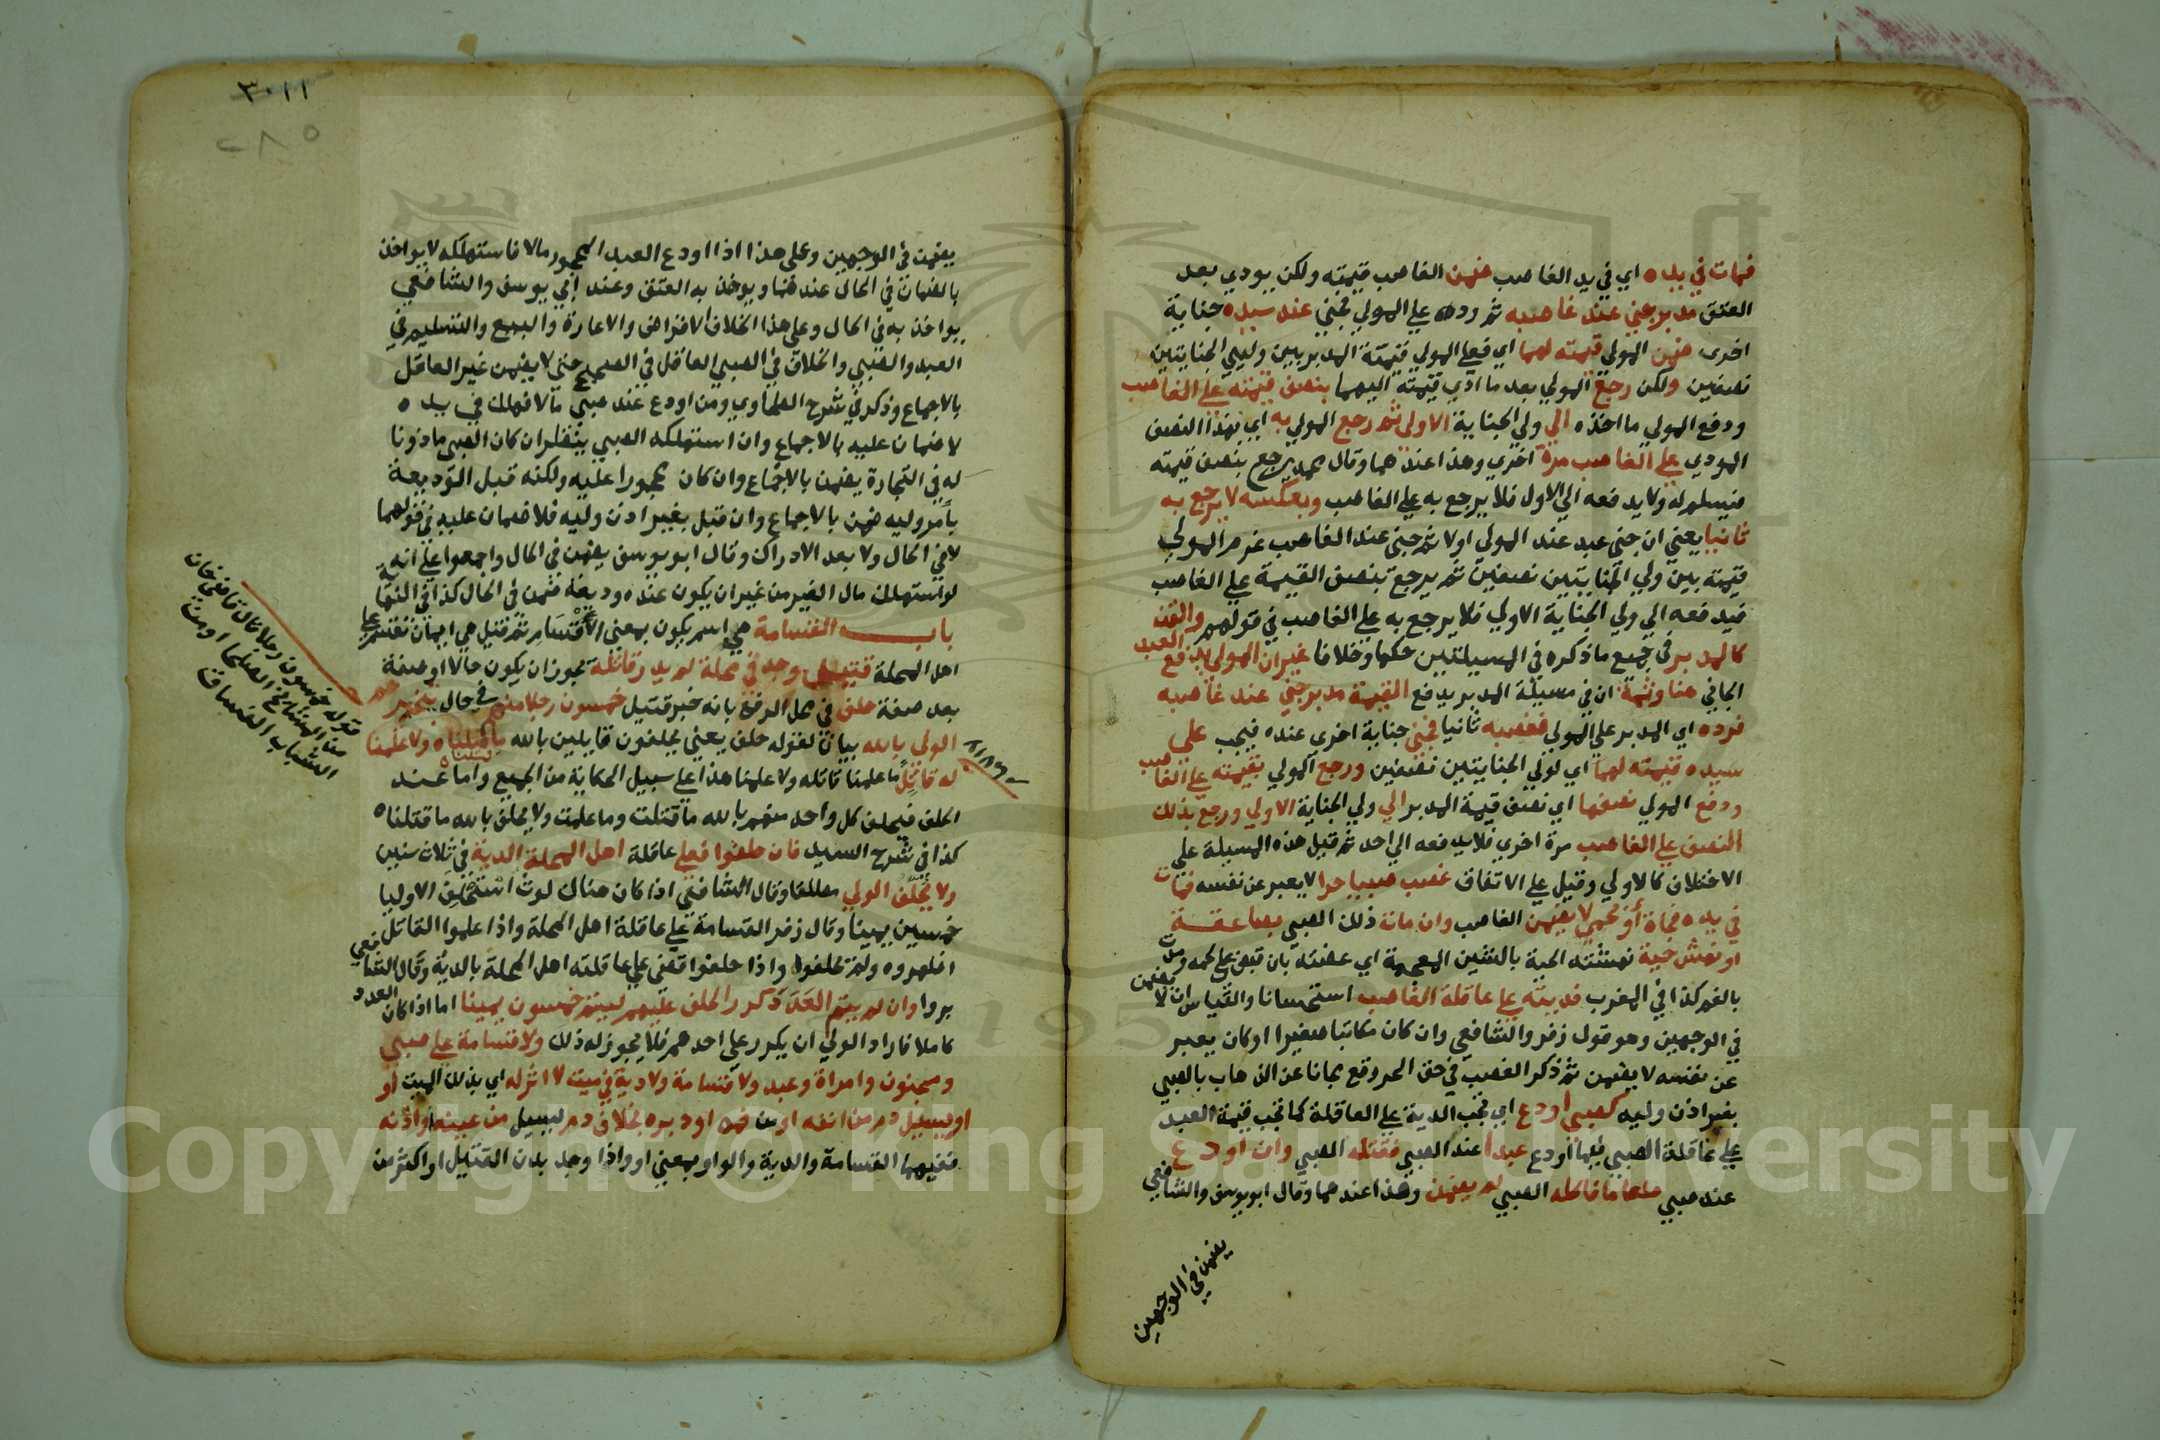 فمات في يده اي في يد الغاصب ضمن الغاصب قيمته ولكن يودي بعد
العتق مدبر جني عند غاصبه ثم رده علي المولي فجني عند سيده جناية
اخرى ضمن المولي قيمته لهما اي فعلي المولي قيمة المدبر بين وليي الجنايتين
نصفين ولكن رجع المولي بعد ما ادي قيمته اليهما بنصف قيمته علي الغاصب
ودفع المولي ما اخذه الي ولي الجناية الاولى ثم رجع المولي به اي بهذا النصف
المودي علي الغاصب مرة اخري وهذا عندهما وقال محمد يرجع بنصف قيمته
فيسلم له ولا يدفعه الي الاول فلا يرجع به علي الغاصب وبعكسه لا يرجع به
ثانيا يعني ان جني عبد عند المولي اولا ثم جني عند الغاصب غرم المولي
قيمته بين ولي الجنايتين نصفين ثم يرجع بنصف القيمة علي الغاصب
فيدفعه الي ولي الجناية الاولي فلا يرجع به علي الغاصب في قولهم والقن
كالمدبر في جميع ما ذكره في المسيلتين حكما وخلافا غير ان المولي يدفع العبد
الجاني هنا وثمة ان في مسيلة المدبر يدفع القيمة مدبر جني عند غاصبه
فرده اي المدبر علي المولي فغصبه ثانيا فجني جناية اخري عنده فيجب علي
سيده قيمته لهما اي لولي الجنايتين نصفين ورجع المولي بقيمته علي الغاصب
ودفع المولي نصفها اي نصف قيمة المدبر الي ولي الجناية الاولي ورجع بذلك
النصف علي الغاصب مرة اخري فلا يدفعه الي احد ثم قيل هذه المسيلة علي
الاختلاف كالاولي وقيل علي الاتفاق غصب صبيا حرا لا يعبر عن نفسه فمات
في يده فجاة أو بحمي لا يضمن الغاصب وان مات ذلك الصبي بصاعقة
او نهش حية نهشته الحية بالشين المعجمة اي عضته بان قبض علي لحمه
بالفم كذا في المغرب فديته علي عاقلة الغاصب استحسانا والقياس ان لا يضمن
في الوجهين وهو قول زفر والشافعي وان كان مكاتبا صغيرا او كان يعبر
عن نفسه لا يضمن ثم ذكر الغصب في حق الحر وقع مجازا عن الذهاب بالصبي
بغير اذن وليه كصبي اودع اي تجب الدية علي العاقلة كما تجب قيمة العبد
علي عاقلة الصبي فيما اودع عبدا عند الصبي فقتله الصبي وان اودع
عند صبي طعاما فاكله الصبي لم يضمن وهذا عندهما وقال ابو يوسف والشافعي
يضمن في الوجهين
٣٠١١
٢٨٥
يضمن في الوجهين وعلى هذا اذا اودع العبد المحجور مالا فاستهلكه لا يواخذ
بالضمان في الحال عندهما ويوخذ به العتق وعند ابي يوسف والشافعي
يواخذ به في الحال وعلي هذا الخلاف الاقراض والاعارة والبيع والتسليم في
العبد والصبي والخلاف في الصبي العاقل في الصحيح حتي لا يضمن غير العاقل
بالاجماع وذكر في شرح الطحاوي ومن اودع عند صبي مالا فهلك في يده
لا ضمان عليه بالاجماع وان استهلكه الصبي ينظر ان كان الصبي ماذونا
له في التجارة يضمن بالاجماع وان كان محجورا عليه ولكنه قبل الوديعة
بأمر وليه ضمن بالاجماع وان قبل بغير اذن وليه فلا ضمان عليه في قولهما
لا في الحال ولا بعد الادراك وقال ابو يوسف يضمن في الحال واجمعوا علي انه
لو استهلك مال الغير من غير ان يكون عنده وديعة ضمن في الحال كذا في النهاية
باب القسامة هي اسم يكون بمعني الاقسام ثم قيل هي ايمان تقسم علي
اهل المحلة قتيل وجد في محلة لم يدر قاتله يجوز ان يكون حالا او صفة
بعد صفة حلف في محل الرفع بانه خبر قتيل خمسون رجلا منهم في حال يتخيرهم
الولي بالله بيان لقوله حلف يعني يحلفون قايلين بالله ما قتلناه ولا علمنا
له قاتلا ما علمنا قاتله ولا علمنا هذا علي سبيل الحكاية من الجميع واما عند
الحلف فيحلف كل واحد منهم بالله ما قتلت وما علمت ولا يحلف بالله ما قتلناه
كذا في شرح السيد فان حلفوا فعلي عاقلة اهل المحلة الدية في ثلاث سنين
ولا يحلف الولي مطلقا وقال الشافعي اذا كان هناك لوث استحلف الاوليا
خمسين يمينا وقال زفر القسامة علي عاقلة اهل المحلة واذا علموا القاتل
اظهروه ولم يحلفوا واذا حلفوا قضي علي عاقلته اهل المحلة بالدية وقال الشافعي
بروا وان لم يتم العدد كرر الحلف عليهم ليتم خمسون يمينا اما اذا كان العدد
كاملا فاراد الولي ان يكرر علي احدهم فلا يجوز له ذلك ولا قسامة علي صبي
ومجنون وامراة وعبد ولا قسامة ولا دية في ميت لا اثر له اي بذلك الميت أو
او يسيل دم من انفه او من فمه او دبره بخلاف دم يسيل من عينه او اذنه
ففيهما القسامة والدية والواو بمعني او واذا وجد بدن القتيل او اكثر من
قوله خمسون رجلا قال قاضيخان
من المشايخ الصلحا او من
الشباب الفساق